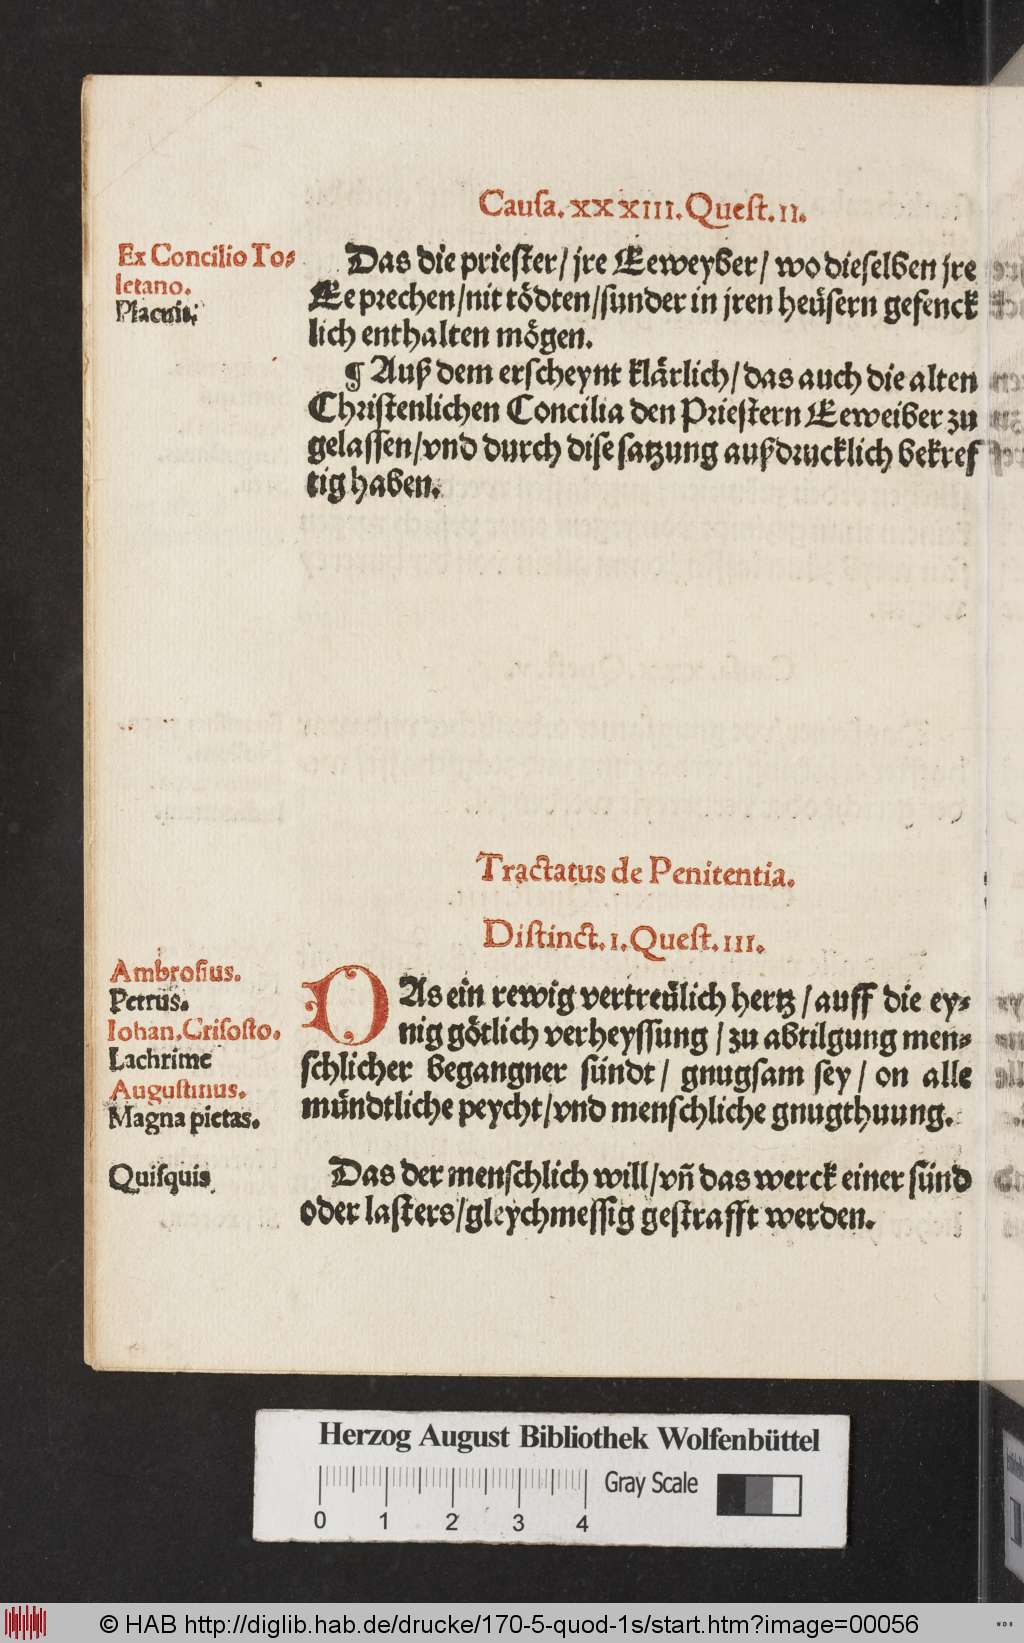 Causa. XXXIII. Quest. II.
Ex Concilio To-
letano.
Placuit.
Das die priester/ jre Eeweyber/ wo dieselben jre
Ee prechen/ nit tödten/ sunder in jren heüsern gefenck
lich enthalten mögen.
¶ Auß dem erscheynt klärlich/ das auch die alten
Christenlichen Concilia den Priestern Eeweiber zu
gelassen/ vnd durch dise satzung außdrucklich bekref
tig haben.
Tractatus de Penitentia.
Distinct. I. Quest. III.
Ambrosius.
Petrus.
Iohan. Crisosto.
Lachrime
Augustinus.
Magna pietas.
DAs ein rewig vertreülich hertz/ auff die ey-
nig götlich verheyssung/ zu abtilgung men-
schlicher begangner sündt/ gnugsam sey/ on alle
mündtliche peycht/ vnd menschliche gnugthuung.
Quisquis
Das der menschlich will/ vñ das werck einer sünd
oder lasters/ gleychmessig gestrafft werden.
Herzog August Bibliothek Wolfenbüttel
0 1 2 3 4
Gray Scale
© HAB http://diglib.hab.de/drucke/170-5-quod-1s/start.htm?image=00056